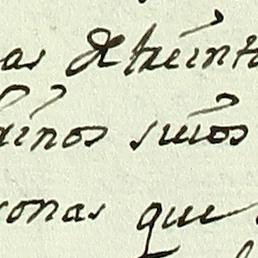 as de treint
inos suios
onas que